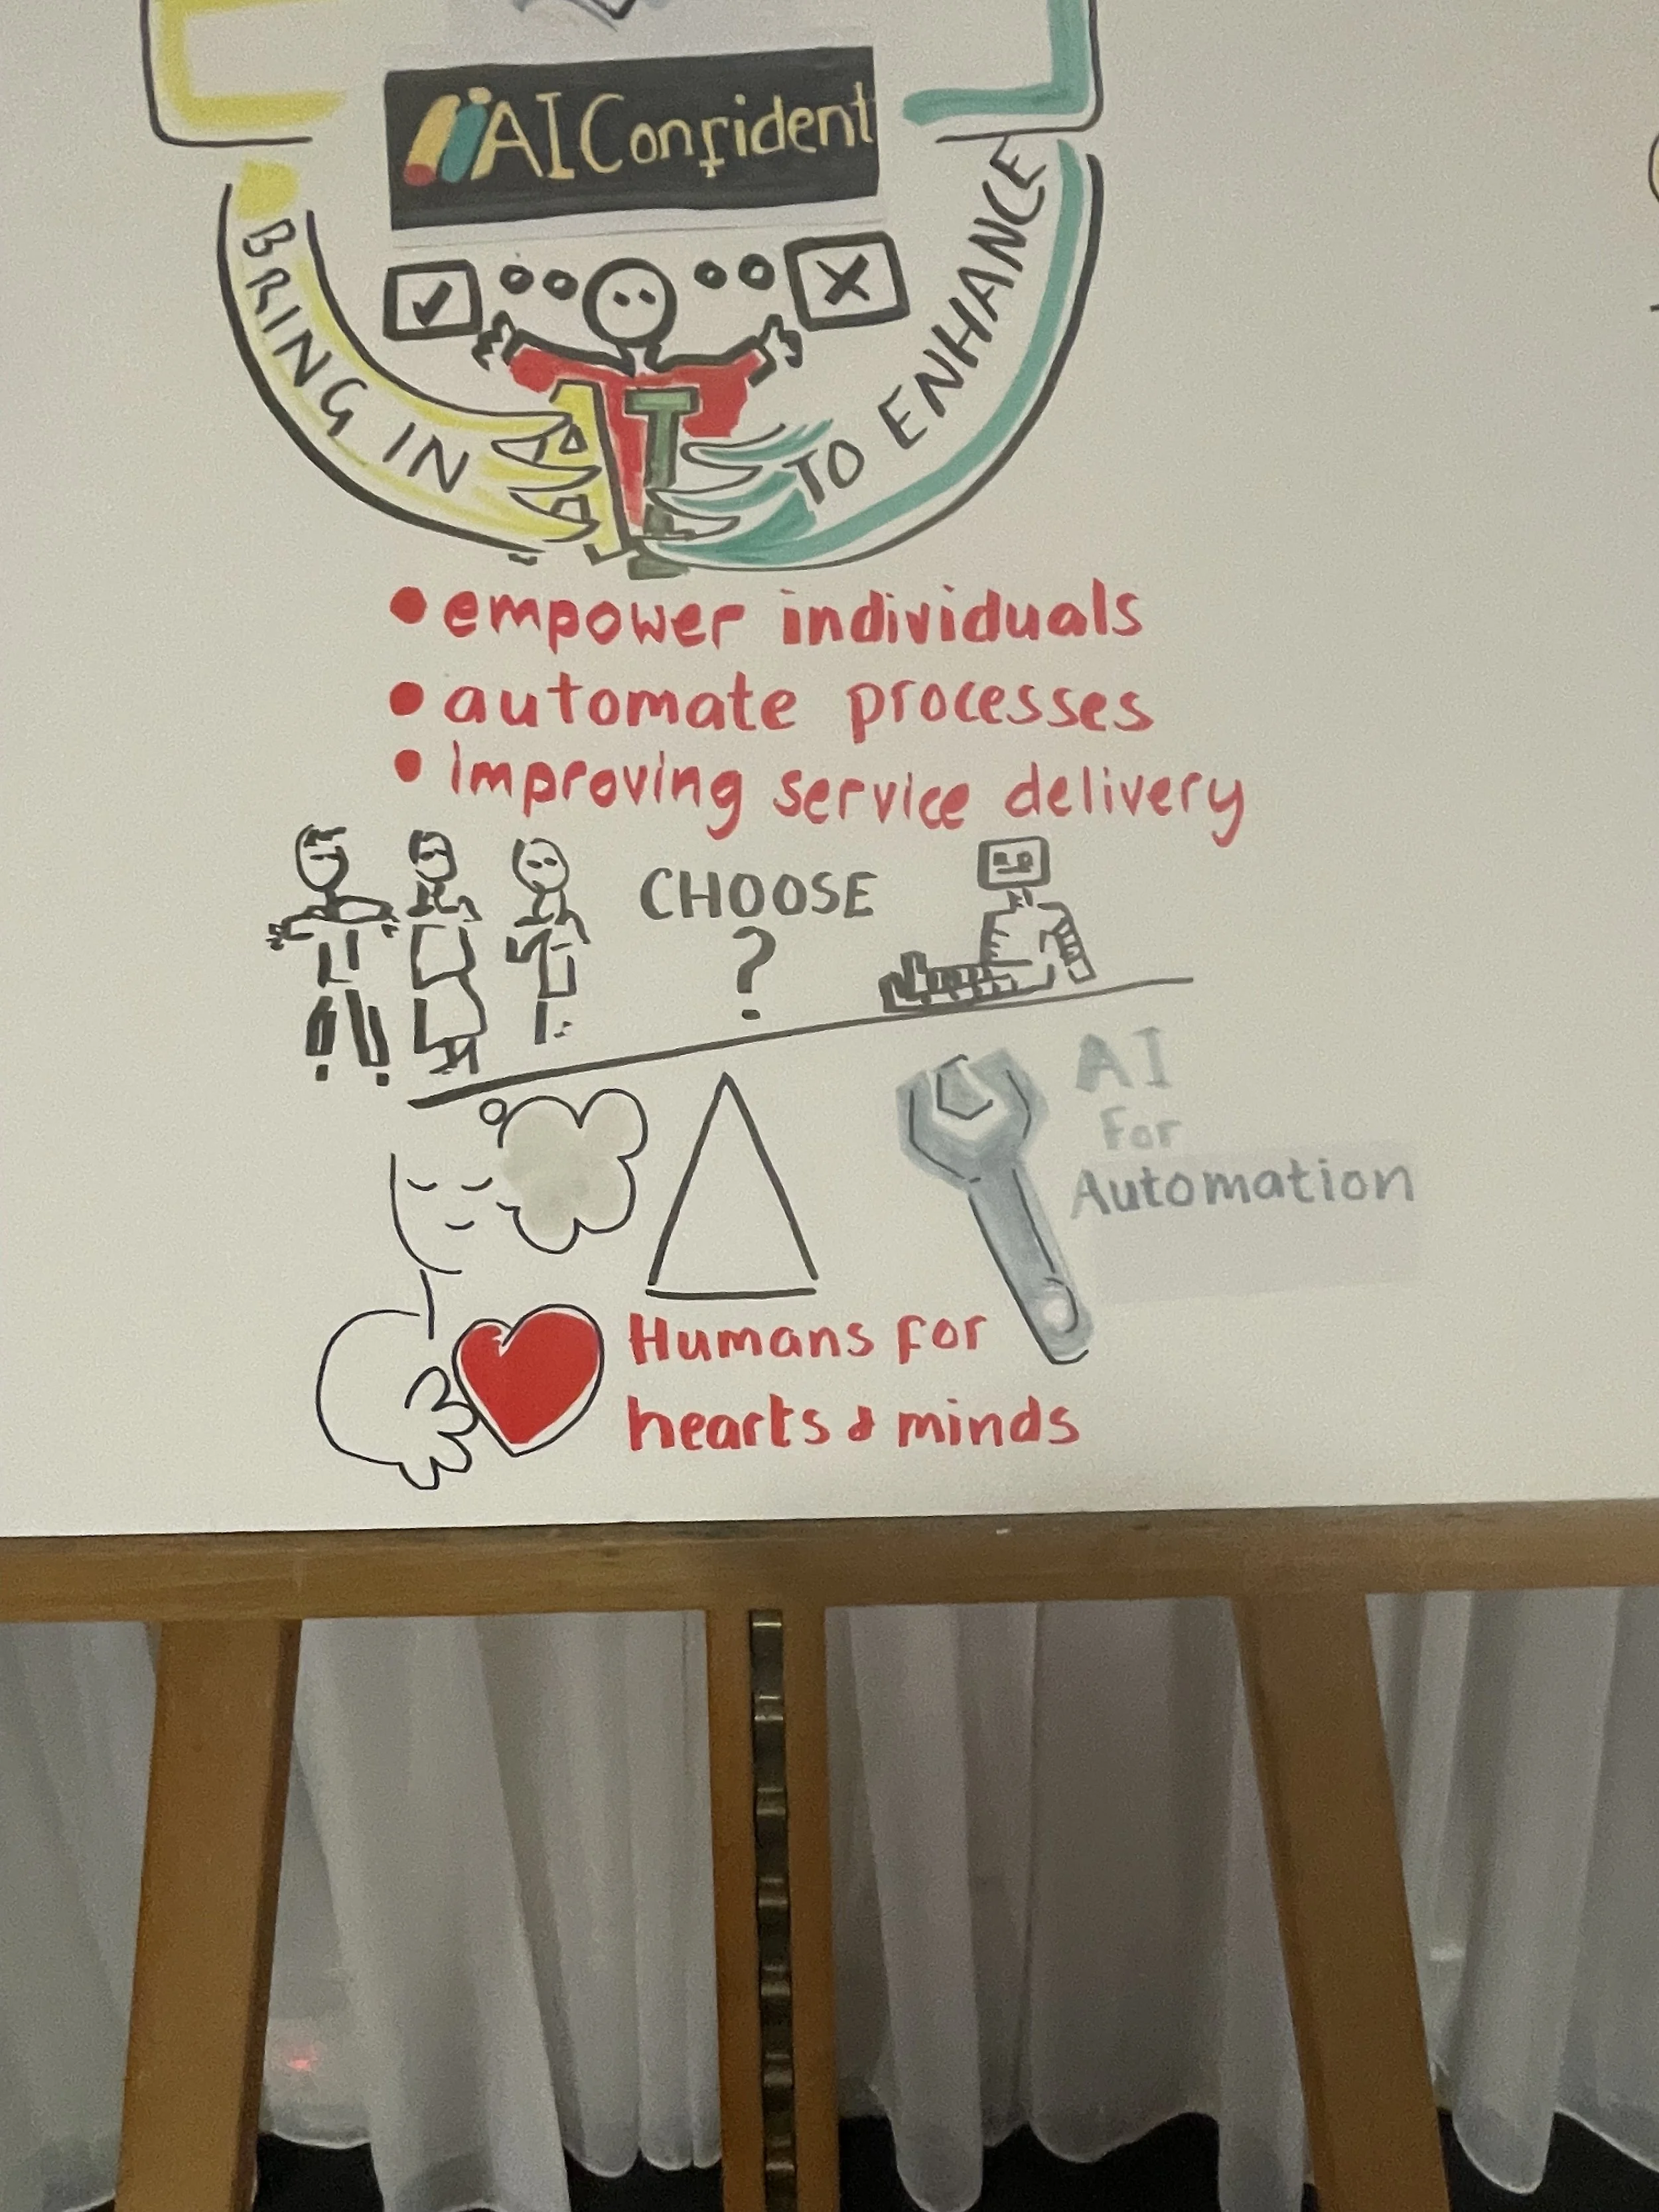 AI Confident
BRING IN
AI
TO ENHANCE
• empower individuals
• automate processes
• improving service delivery
CHOOSE
?
AI
For
Automation
Humans for
hearts & minds